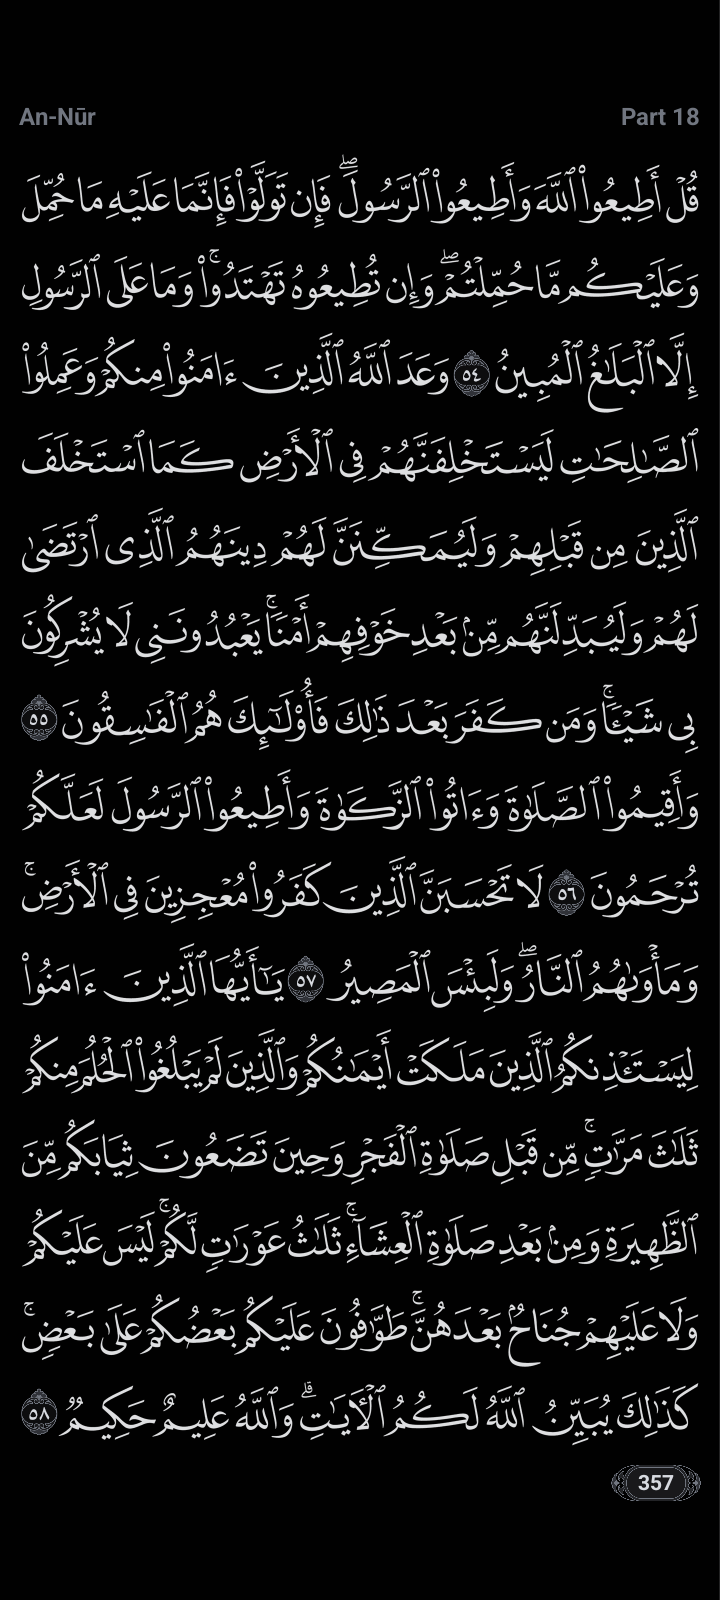 An-Nūr Part 18
قُلۡ أَطِيعُواْ ٱللَّهَ وَأَطِيعُواْ ٱلرَّسُولَۖ فَإِن تَوَلَّوۡاْ فَإِنَّمَا عَلَيۡهِ مَا حُمِّلَ
وَعَلَيۡكُم مَّا حُمِّلۡتُمۡۖ وَإِن تُطِيعُوهُ تَهۡتَدُواْۚ وَمَا عَلَى ٱلرَّسُولِ
إِلَّا ٱلۡبَلَٰغُ ٱلۡمُبِينُ ٥٤ وَعَدَ ٱللَّهُ ٱلَّذِينَ ءَامَنُواْ مِنكُمۡ وَعَمِلُواْ
ٱلصَّٰلِحَٰتِ لَيَسۡتَخۡلِفَنَّهُمۡ فِي ٱلۡأَرۡضِ كَمَا ٱسۡتَخۡلَفَ
ٱلَّذِينَ مِن قَبۡلِهِمۡ وَلَيُمَكِّنَنَّ لَهُمۡ دِينَهُمُ ٱلَّذِي ٱرۡتَضَىٰ
لَهُمۡ وَلَيُبَدِّلَنَّهُم مِّنۢ بَعۡدِ خَوۡفِهِمۡ أَمۡنٗاۚ يَعۡبُدُونَنِي لَا يُشۡرِكُونَ
بِي شَيۡـٔٗاۚ وَمَن كَفَرَ بَعۡدَ ذَٰلِكَ فَأُوْلَٰٓئِكَ هُمُ ٱلۡفَٰسِقُونَ ٥٥
وَأَقِيمُواْ ٱلصَّلَوٰةَ وَءَاتُواْ ٱلزَّكَوٰةَ وَأَطِيعُواْ ٱلرَّسُولَ لَعَلَّكُمۡ
تُرۡحَمُونَ ٥٦ لَا تَحۡسَبَنَّ ٱلَّذِينَ كَفَرُواْ مُعۡجِزِينَ فِي ٱلۡأَرۡضِۚ
وَمَأۡوَىٰهُمُ ٱلنَّارُۖ وَلَبِئۡسَ ٱلۡمَصِيرُ ٥٧ يَٰٓأَيُّهَا ٱلَّذِينَ ءَامَنُواْ
لِيَسۡتَـٔۡذِنكُمُ ٱلَّذِينَ مَلَكَتۡ أَيۡمَٰنُكُمۡ وَٱلَّذِينَ لَمۡ يَبۡلُغُواْ ٱلۡحُلُمَ مِنكُمۡ
ثَلَٰثَ مَرَّٰتٖۚ مِّن قَبۡلِ صَلَوٰةِ ٱلۡفَجۡرِ وَحِينَ تَضَعُونَ ثِيَابَكُم مِّنَ
ٱلظَّهِيرَةِ وَمِنۢ بَعۡدِ صَلَوٰةِ ٱلۡعِشَآءِۚ ثَلَٰثُ عَوۡرَٰتٖ لَّكُمۡۚ لَيۡسَ عَلَيۡكُمۡ
وَلَا عَلَيۡهِمۡ جُنَاحُۢ بَعۡدَهُنَّۚ طَوَّٰفُونَ عَلَيۡكُم بَعۡضُكُمۡ عَلَىٰ بَعۡضٖۚ
كَذَٰلِكَ يُبَيِّنُ ٱللَّهُ لَكُمُ ٱلۡأٓيَٰتِۗ وَٱللَّهُ عَلِيمٌ حَكِيمٞ ٥٨
357